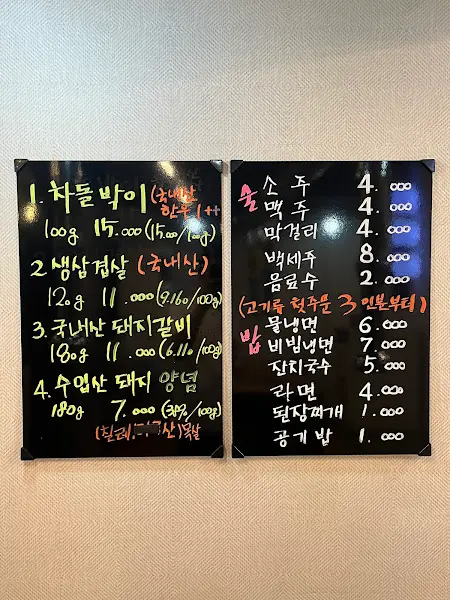 1. 차돌박이 (국내산
한우 1++
100g 15.000 (15.000/100g)
2 생삼겹살 (국내산)
120g 11.000 (9.160/100g)
3. 국내산 돼지갈비
180g 11.000 (6.110/100g)
4. 수입산 돼지 양념
180g 7.000 /100g)
(칠레 산) 목살
술 소주 4.000
맥주 4.000
막걸리 4.000
백세주 8.000
음료수 2.000
(고기류 첫주문 3인분부터)
밥 물냉면 6.000
비빔냉면 7.000
잔치국수 5.000
라면 4.000
된장찌개 1.000
공기밥 1.000